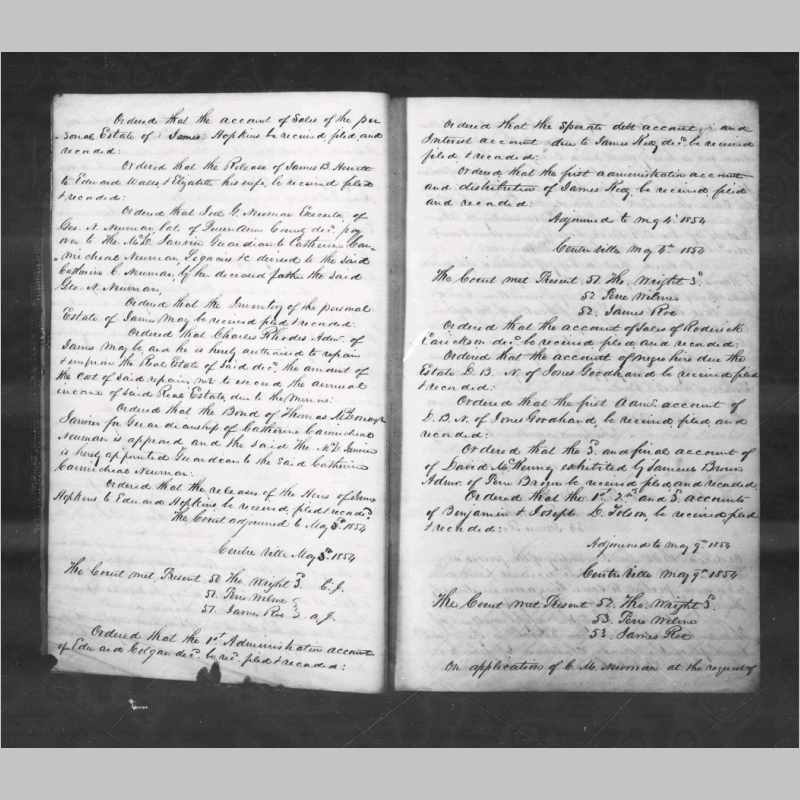 Ordered that the account of Sales of the per
sonal Estate of James Hopkins be received, filed, and
recorded:
Ordered that the Release of James B. Hewitt
to Edward Walls & Elizabeth his wife, be received filed
& recorded:
Ordered that G. Newman Executor of
Geo. N. Newman of Queen Anns County decd. pay
over to Tho. McD. Guardian to Catherine Car-
michael Newman, Legacies &c devised to the said
Catharine C. Newman, by her deceased father the said
Geo. N. Newman,
Ordered that the Inventory of the personal
Estate of James May be received filed & recorded:
Ordered that Charles Rhodes Admr. of
James May be and he is hereby authorised to repair
& improve the Real Estate of said decd. the amount of
the cost of said repairs not to exceed the annual
income of said Real Estate, due to the minors:
Ordered that the Bond of Thomas
for Guardianship of Catherine Carmichael
Newman is approved and the said Tho. McD.
is hereby appointed Guardean to the said Catherine
Carmichael Newman:
Ordered that the release of the Heirs of James
Hopkins to Edward Hopkins be received, filed & recorded.
The Court adjourned to May 3d. 1854
Centre Ville May 3d. 1854
The Court met, Present 50 Tho. Wright 3d. C. J.
51. Pere Wilmer
57. James Roe a. J.
Ordered that the 1st Administration account
of Edward decd. be recd. filed & recorded:
Ordered that the Sperate debt account, and
Interest account due to James decd. be received
filed & recorded:
Ordered that the first administration account
and distribution of James be received, filed
and recorded:
Adjourned to May 4th 1854
Centre Ville May 4th 1854
The Court met Present 51 Tho. Wright 3d.
52 Pere Wilmer
52. James Roe
Ordered that the account of Sales of Roderick
decd. be received, filed, and recorded:
Ordered that the account of negro hire due the
Estate D. B. N. of Jones Goodhand be received, filed
& recorded:
Ordered that the first Admr. account of
D. B. N. of Jones Goodhand, be received, filed, and
recorded:
Ordered that the 3d. and final account of
of David McKenney exhibited by Samuel Brown
Admr. of Pere Brown be received filed, and recorded
Ordered that the 1st. 2nd. and 3d. accounts
of Benjamin & Joseph D. be received, filed
& recorded:
Adjourned to May 9th. 1854
Centre Ville May 9th. 1854
The Court met Present 52. Tho. Wright 3d.
53. Pere Wilmer
53 James Roe
On application of C. M. Newman at the request of